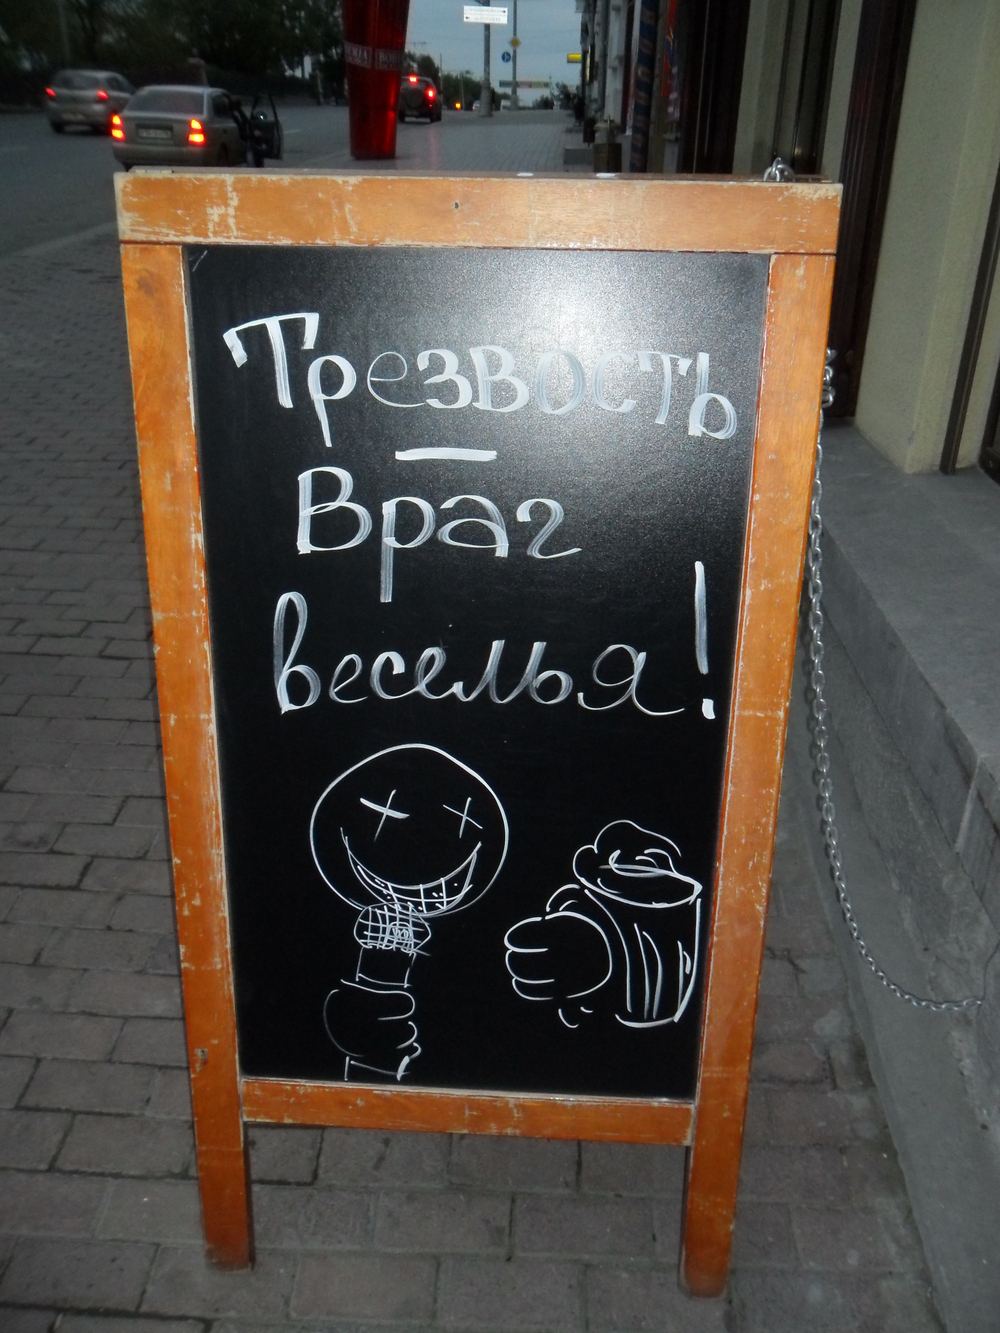 Трезвость
—
Враг
веселья!